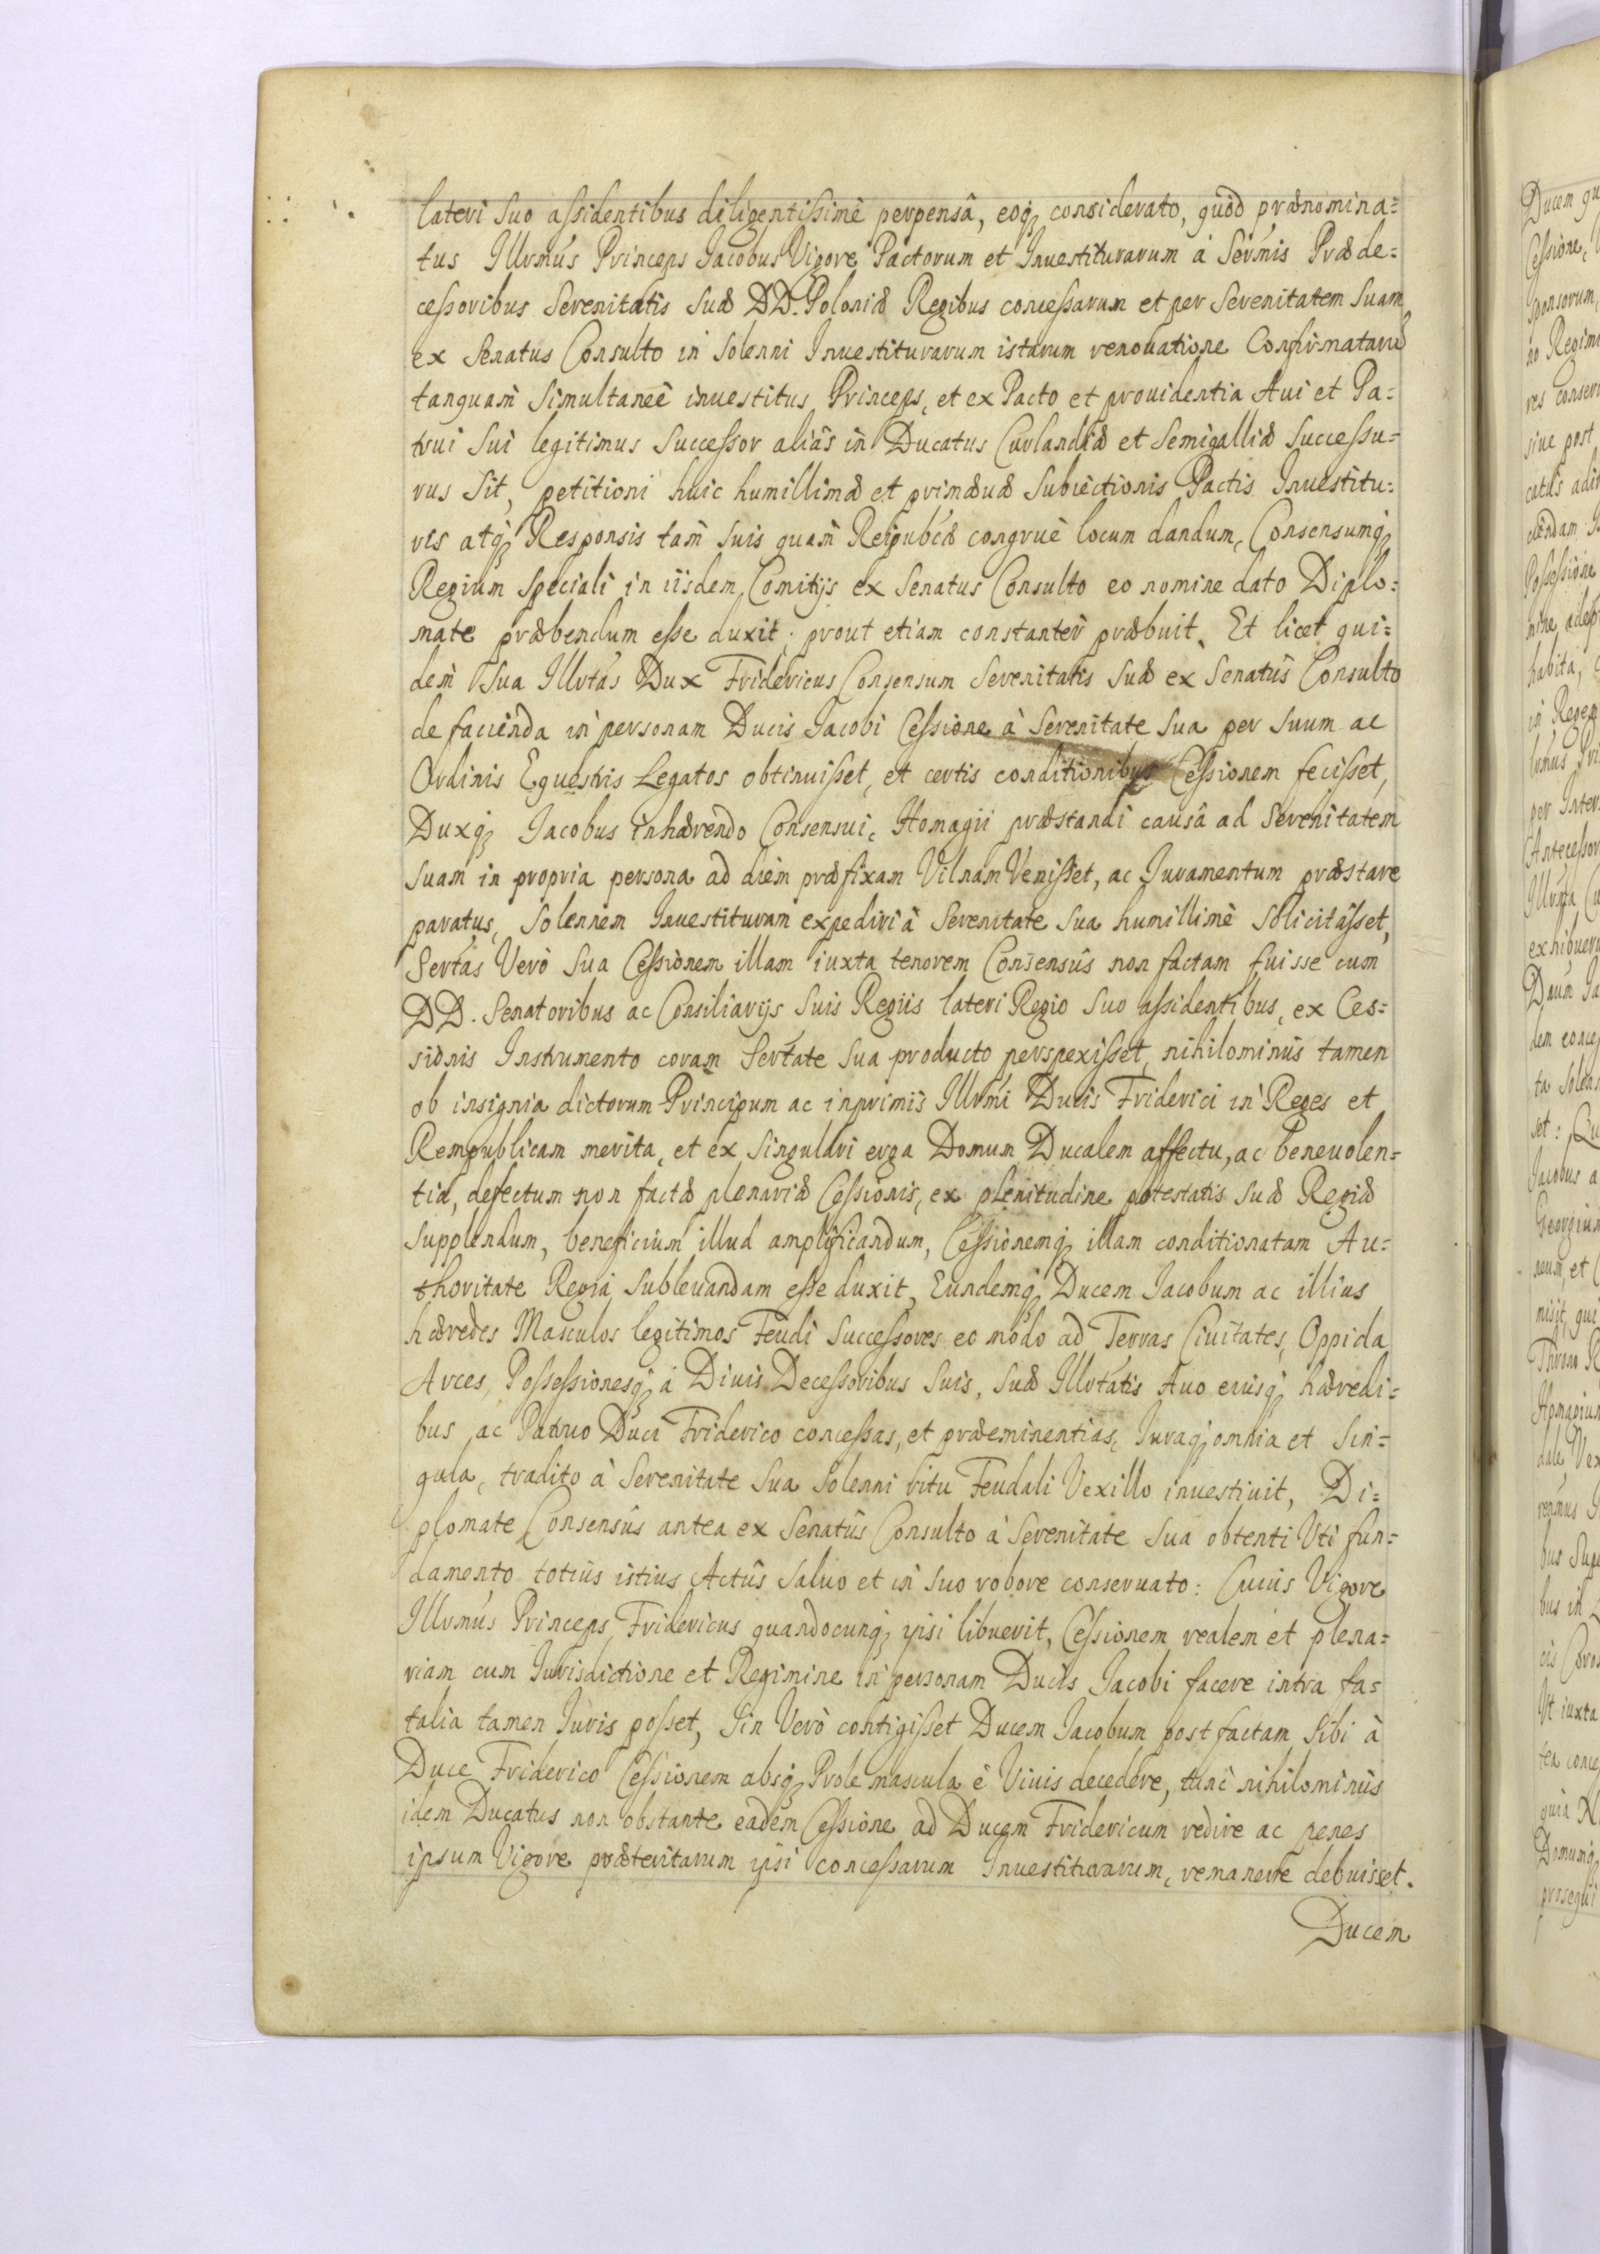 lateri suo assidentibus diligentissimè perpensâ, eoq̨ considerato, quòd prænomina=
tus Illrmús Princeps Jacobus Vigore Pactorum et Inuestiturarum à Sérmis Præde=
cessoribus Serenitatis suæ DD. Poloniæ Regibus concessarum et per Serenitatem suam
ex Senatus Consulto in solenni Inuestiturarum istarum renouatione Confirmatarũ
tanquam simultaneè inuestitus Princeps, et ex Pacto et prouidentia Aui et Pa=
trui sui legitimus successor aliàs in Ducatus Curlandiæ et Semigalliæ successu=
rus sit, petitioni huic humillimæ et primæuæ subiectionis Pactis Inuestitu=
ris atq̨ Responsis tam suis quam Reipubcæ congruè locum dandum, Consensumq̨
Regium speciali in iisdem Comitijs ex Senatus Consulto eo nomine dato Diplo=
mate præbendum esse duxit; prout etiam constanter præbuit. Et licet qui=
dem sua Illrtás Dux Fridericus Consensum Serenitatis suæ ex Senatûs Consulto
de facienda in personam Ducis Jacobi Cessione à Serenitate sua per suum ac
Ordinis Equestris Legatos obtinuisset, et certis conditionibus Cessionem fecisset,
Duxq̨ Jacobus inhærendo Consensui, Homagii præstandi causâ ad Serenitatem
suam in propria persona ad diem præfixam Vilnam Venisset, ac Juramentum præstare
paratus, solennem Inuestituram expediri à Serenitate sua humillimè solicitâsset,
Sertás Verò sua Cessionem illam iuxta tenorem Consensûs non factam fuisse cum
DD. Senatoribus ac Consiliarijs suis Regiis lateri Regio suo assidentibus, ex Ces=
sionis Instrumento coram Sertáte sua producto perspexisset, nihilominus tamen
ob insignia dictorum Principum ac inprimis Illrmi Ducis Friderici in Reges et
Rempublicam merita, et ex singulari erga Domum Ducalem affectu, ac beneuolen=
tia, defectum non factæ plenariæ Cessionis, ex plenitudine potestatis suæ Regiæ
supplendum, beneficium illud amplificandum, Cessionemq̨ illam conditionatam Au=
thoritate Regia subleuandam esse duxit, Eundemq̨ Ducem Jacobum ac illius
hæredes Masculos legitimos Feudi successores eo modo ad Terras Ciuitates, Oppida
Arces, Possessionesq̨ à Diuis Decessoribus suis, suæ Illrtátis Auo eiusq̨ hæredi=
bus ac Patruo Duci Friderico concessas, et præeminentias, Juraq̨ omnia et sin=
gula, tradito à Serenitate sua solenni ritu Feudali Vexillo inuestiuit, Di=
plomate Consensûs antea ex Senatûs Consulto à Serenitate sua obtenti Vti fun=
damento totius istius Actûs saluo et in suo robore conseruato: Cuius Vigore
Illrmús Princeps Fridericus quandocunq̨ ipsi libuerit, Cessionem realem et plena=
riam cum Jurisdictione et Regimine in personam Ducis Jacobi facere intra fa=
talia tamen Juris posset, sin Verò contigisset Ducem Jacobum post factam sibi à
Duce Friderico Cessionem absq̨ Prole mascula è Viuis decedere, tunc nihilominus
idem Ducatus non obstante eadem Cessione ad Ducem Fridericum redire ac penes
ipsum Vigore præteritarum ipsi concessarum Inuestiturarum, remanere debuisset.
Ducem